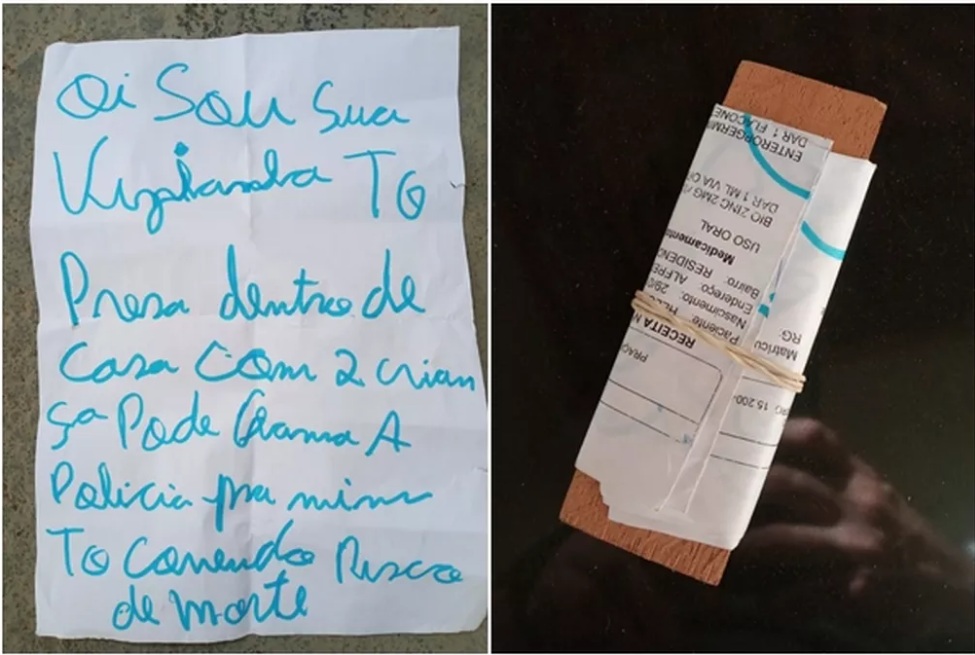 Oi Sou Sua
TO
Presa dentro de
Casa Com 2 crian
ça Pode Chama A
Policia pra mim
To Correndo Risco
de Morte
PRAÇ
RECEITA M
Paciente:
Nascimento: 29/
Endereço: ALFRE
Bairro: RESIDENC
Matricu
RG:
Medicamento
USO ORAL
BIO ZINC 2MG/
DAR 1 ML VIA O
ENTERORGERMI
DAR 1 FLACONE
15.200-